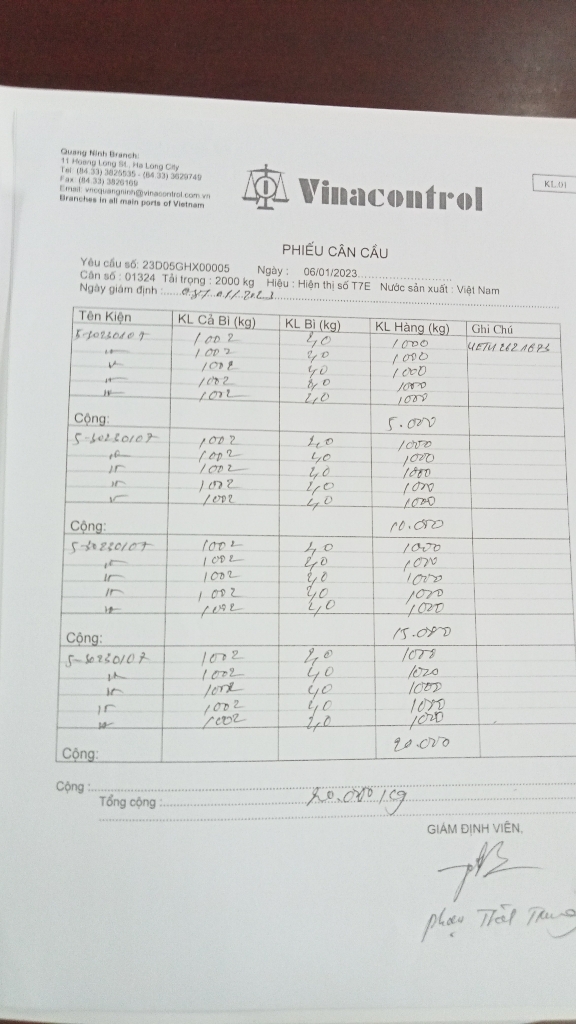 Quang Ninh Branch:
11 Hoang Long St., Ha Long City
Tel: (84.33) 3825535 - (84.33) 3629749
Fax: (84.33) 3826169
Email: vncquangninh@vinacontrol.com.vn
Branches in all main ports of Vietnam
Vinacontrol
KL.01
PHIẾU CÂN CẨU
Yêu cầu số: 23D05GHX00005 Ngày : 06/01/2023
Cân số : 01324 Tải trọng : 2000 kg Hiệu : Hiện thị số T7E Nước sản xuất : Việt Nam
Ngày giám định :
Tên Kiện KL Cả Bì (kg) KL Bì (kg) KL Hàng (kg) Ghi Chú
5-30230107 1002 2,0 1000
1002 2,0 1000
1002 2,0 1000
1002 2,0 1000
1002 2,0 1000
Cộng: 5.000
5-30230107 1002 2,0 1000
1002 2,0 1000
1002 2,0 1000
1002 2,0 1000
1002 2,0 1000
Cộng: 10.000
5-30230107 1002 2,0 1000
1002 2,0 1000
1002 2,0 1000
1002 2,0 1000
1002 2,0 1000
Cộng: 15.000
5-30230107 1002 2,0 1000
1002 2,0 1000
1002 2,0 1000
1002 2,0 1000
1002 2,0 1000
Cộng: 20.000
Cộng :
Tổng cộng : 20.000 kg
GIÁM ĐỊNH VIÊN,